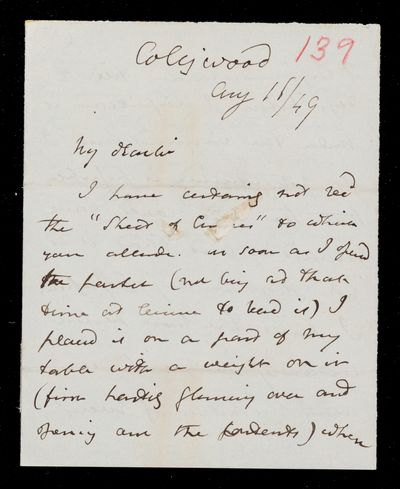 Collingwood 139
Aug 18/49
My dear Sir
I have certainly not rec'd
the "Sheet of Curves" to which
you allude. As soon as I opened
the packet (not being at that
time at leisure to read it) I
placed it on a part of my
table with a weight on it
(first hastily glancing over and
opening out the contents) when